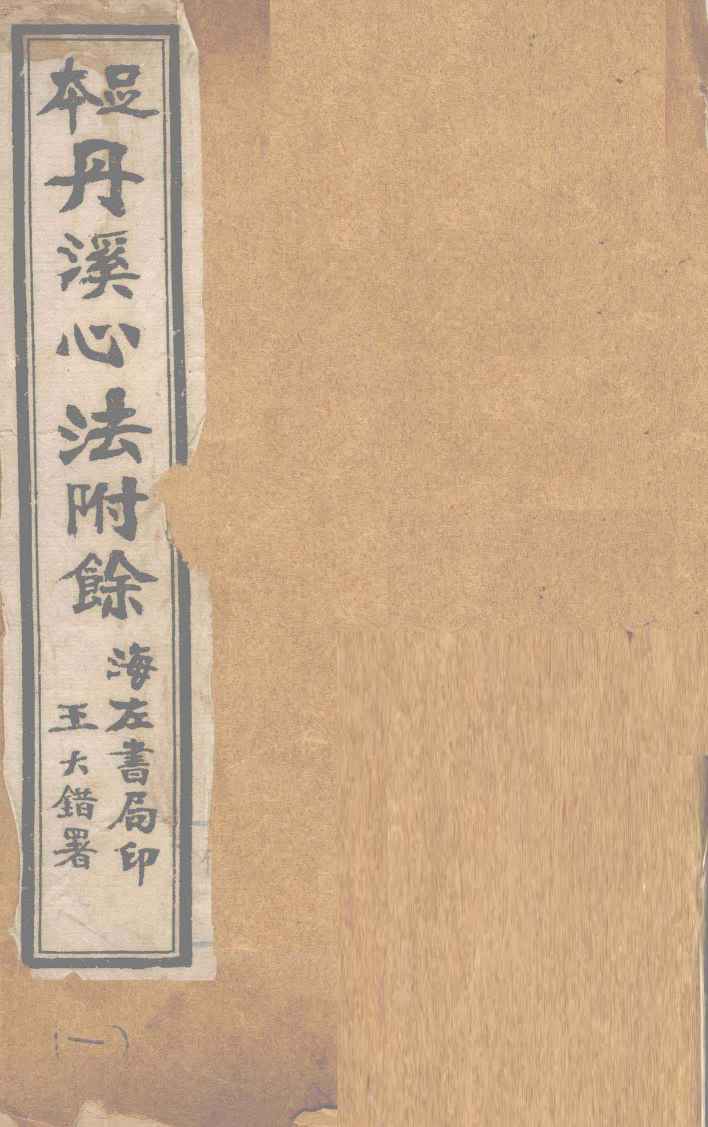 足本
丹溪心法附餘
海左書局印
王大錯署
(一)